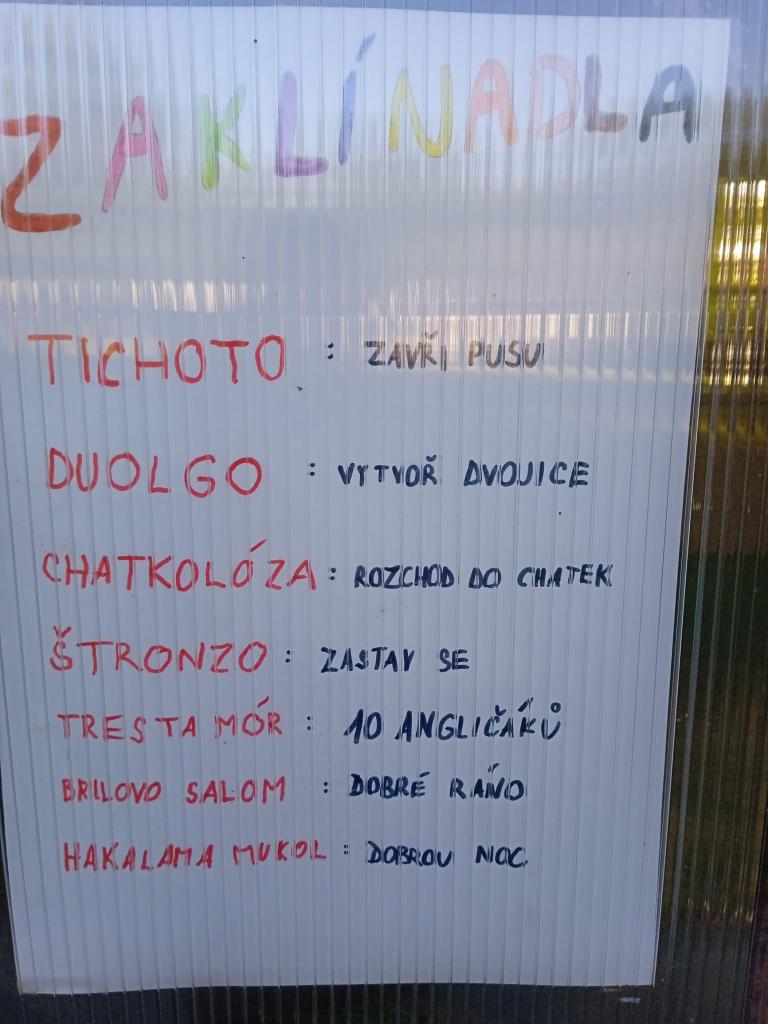 ZAKLÍNADLA
TICHOTO : ZAVŘI PUSU
DUOLGO : VYTVOŘ DVOJICE
CHATKOLÓZA : ROZCHOD DO CHATEK
ŠTRONZO : ZASTAV SE
TRESTA MÓR : 10 ANGLIČÁKŮ
BRILOVO SALOM : DOBRÉ RÁNO
HAKALAMA MUKOL : DOBROU NOC